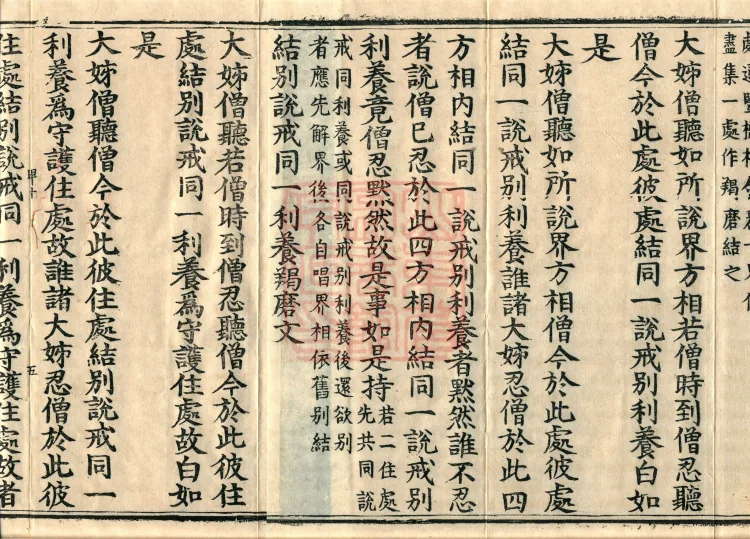 盡集一處作羯磨結之
大姊僧聽如所說界方相若僧時到僧忍聽
僧今於此處彼處結同一說戒別利養白如
是
大姊僧聽如所說界方相僧今於此處彼處
結同一說戒別利養誰諸大姊忍僧於此四
方相內結同一說戒別利養者默然誰不忍
者說僧已忍於此四方相內結同一說戒別
利養竟僧忍默然故是事如是持若二住處先共同說
戒同利養或同說戒別利養後還欲別
者應先解界後各自唱界相依舊別結
結別說戒同一利養羯磨文
大姊僧聽若僧時到僧忍聽僧今於此彼住
處結別說戒同一利養爲守護住處故白如
是
大姊僧聽僧今於此彼住處結別說戒同一
利養爲守護住處故誰諸大姊忍僧於此彼
甲十 五
住處結別說戒同一利養爲守護住處故者